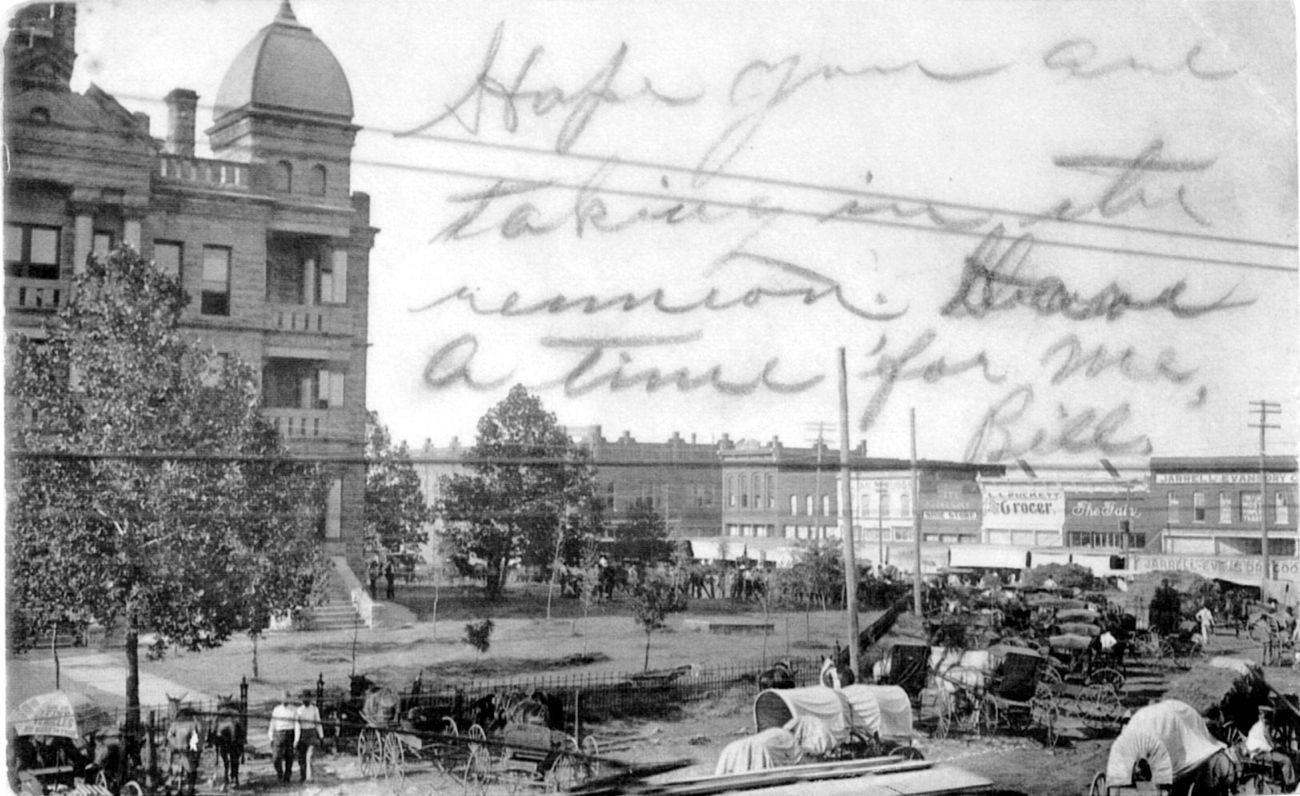 Hope you are
taking in the
reunion. Have
A time for me,
Bill.
L.L. PUCKETT
Grocer.
The Fair
JARRELL-EVANS DRY G
JARRELL-EVANS DRY GOO